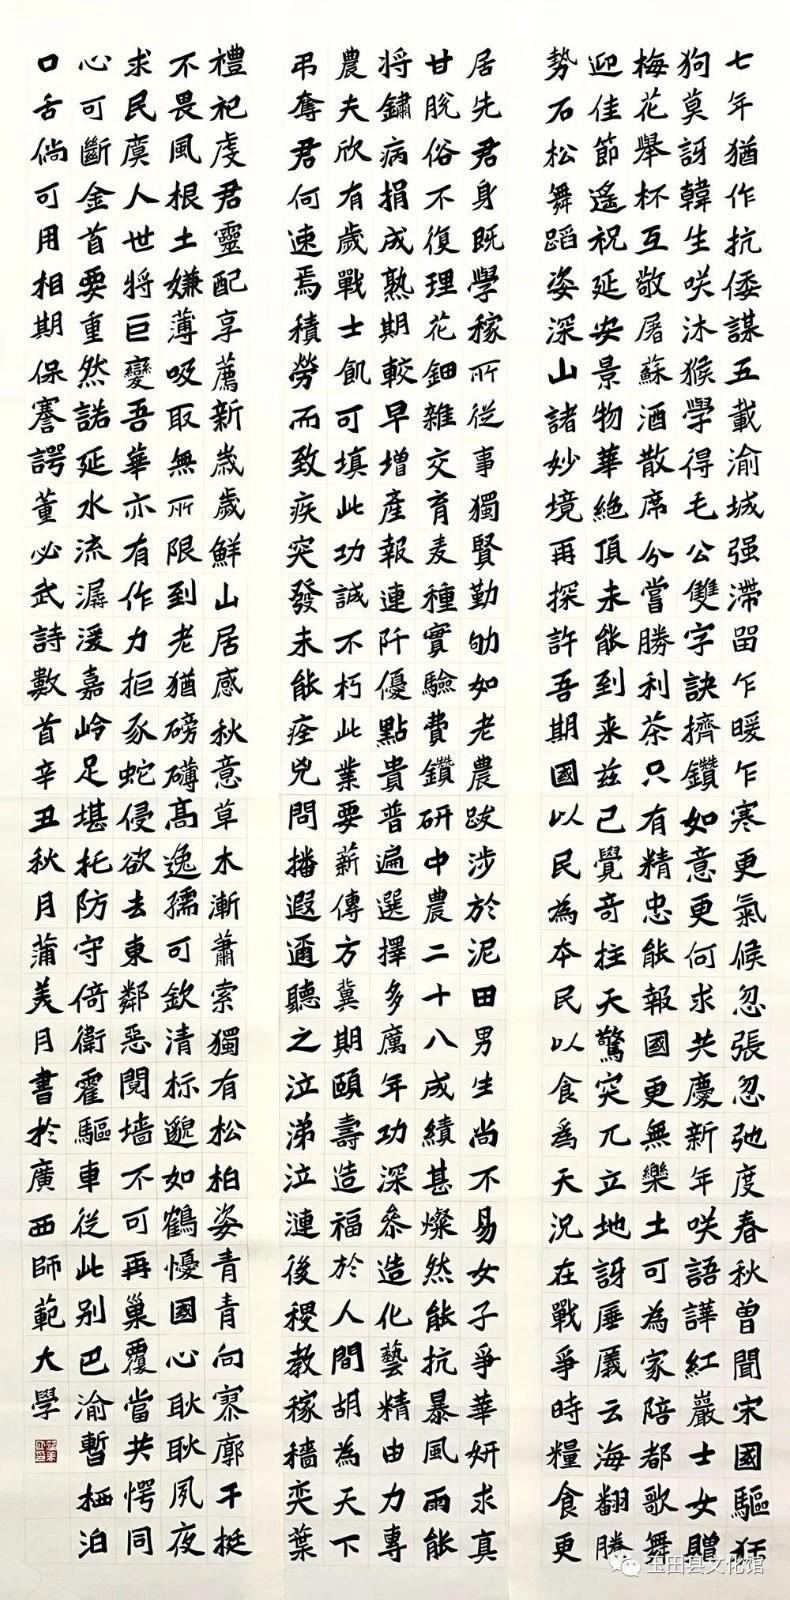 七年猶作抗倭謀五載渝城强滯留乍暖乍寒更氣候忽張忽弛度春秋曾聞宋國驅狂
狗莫訝韓生咲沐猴學得毛公雙字訣擠鑽如意更何求共慶新年咲語譁紅巖士女贈
梅花舉杯互敬屠蘇酒散席分嘗勝利茶只有精忠能報國更無樂土可為家陪都歌舞
迎佳節遙祝延安景物華絶頂未能到来兹已覺奇拄天驚突兀立地訝厜㕒云海翻勝
勢石松舞蹈姿深山諸妙境再探許吾期國以民為本民以食爲天況在戰爭時糧食更
居先君身既學稼所從事獨賢勤劬如老農跋涉於泥田男生尚不易女子爭華妍求真
甘脫俗不復理花鈿雜交育麦種實驗費鑽研中農二十八成績甚燦然能抗暴風雨能
將鏽病捐成熟期較早增產報連阡優點貴普遍選擇多厲年功深參造化藝精由力專
農夫欣有歲戰士飢可填此功誠不朽此業要薪傳方冀期頤壽造福於人間胡為天下
弔奪君何速焉積勞而致疾突發未能痊兇問播遐邇聽之泣涕泣漣後稷教稼穡奕葉
禮祀虔君靈配享薦新歲歲鮮山居感秋意草木漸蕭索獨有松柏姿青青向寥廓干挺
不畏風根土嫌薄吸取無所限到老猶磅礴高逸孺可欽清标邈如鶴懮國心耿耿夙夜
求民虞人世將巨變吾華亦有作力拒豕蛇侵欲去東鄰惡鬩墻不可再巢覆當共愕同
心可斷金首要重然諾延水流潺湲嘉岭足堪托防守倚衛霍驅車從此别巴渝暫栖泊
口舌倘可用相期保謇諤董必武詩數首辛丑秋月蒲美月書於廣西師範大學
玉田县文化馆